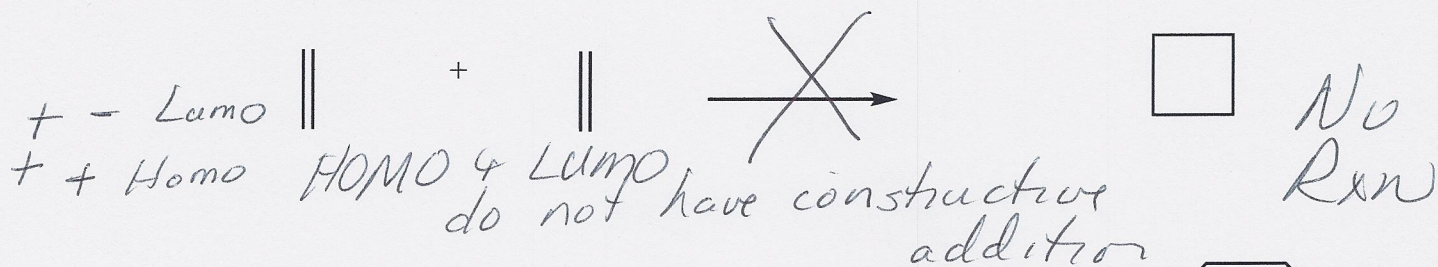 +
+ - Lumo
+ + Homo
HOMO & LUMO
do not have constructive
addition
No
Rxn